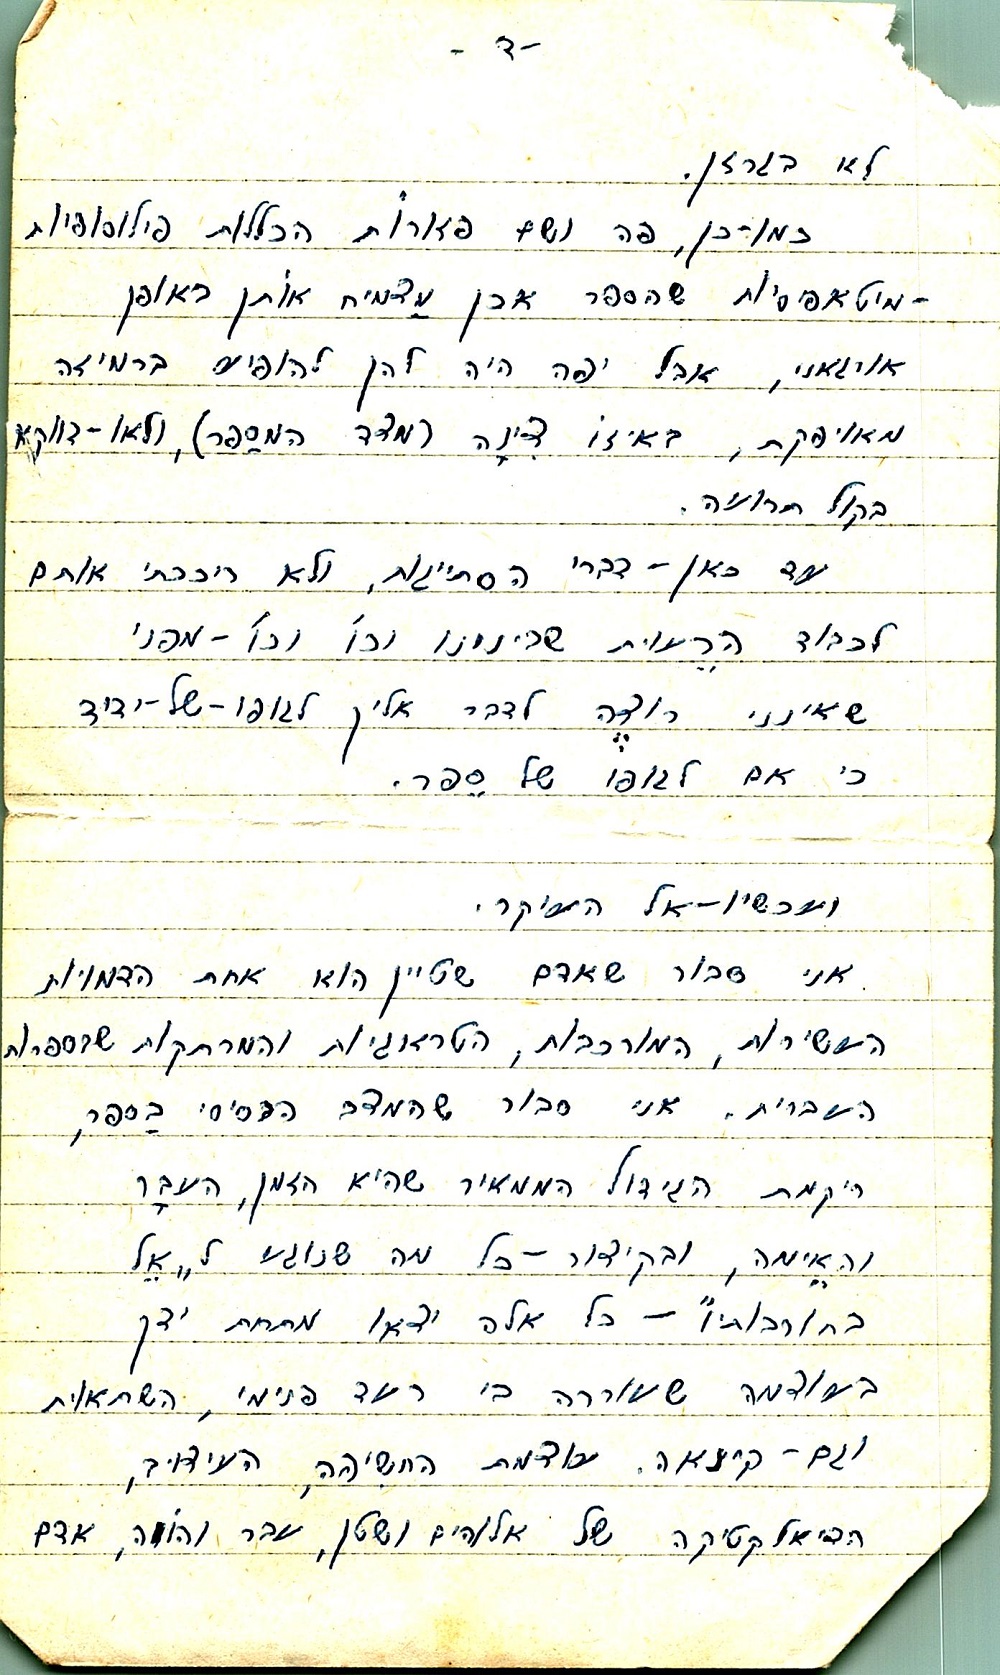 -ד-
לא בגרזן.
כמו-כן, פה ושם פזורוֹת הכללות פילוסופיות
-מיטאפיסיות שהספר אכן מַצמיח אוֹתן באופן
אורגאני, אבל יפה היה להן להופיע ברמיזה
מאופקת, באיזוֹ צִינָה (מצד המסַפר), ולאו-דווקא
בקול תרועה.
עד כאן - דברי הסתייגות, ולא ריככתי אותם
לכבוד הרֵעוּת שבינונו וכו' וכו' - מפני
שאינני רוצֶה לדבר אליך לגופו-של-ידיד
כי אם לגופוֹ של סֵפר.
ועכשיו - אל העיקר.
אני סבור שאדם שטיין הוא אחת הדמויות
העשירות, המורכבות, הטראגיות והמרתקות שבספרות
העברית. אני סבור שהמצב הבסיסי בַספר,
ריקמת הגידול הממאיר שהיא הזמן, העבָר
והאֵימה, ובקיצור - כל מה שנוגע ל„אֵל
בחורבותיו" - כל אלה יצאו מתחת ידך
בעוצמה שעוררה בי רעד פנימי, השתאות
וגם - קינאה. עוצמת החשׂיפה, העידון,
הדיאלקטיקה של אלוהים ושטן, עבר והווה, אדם